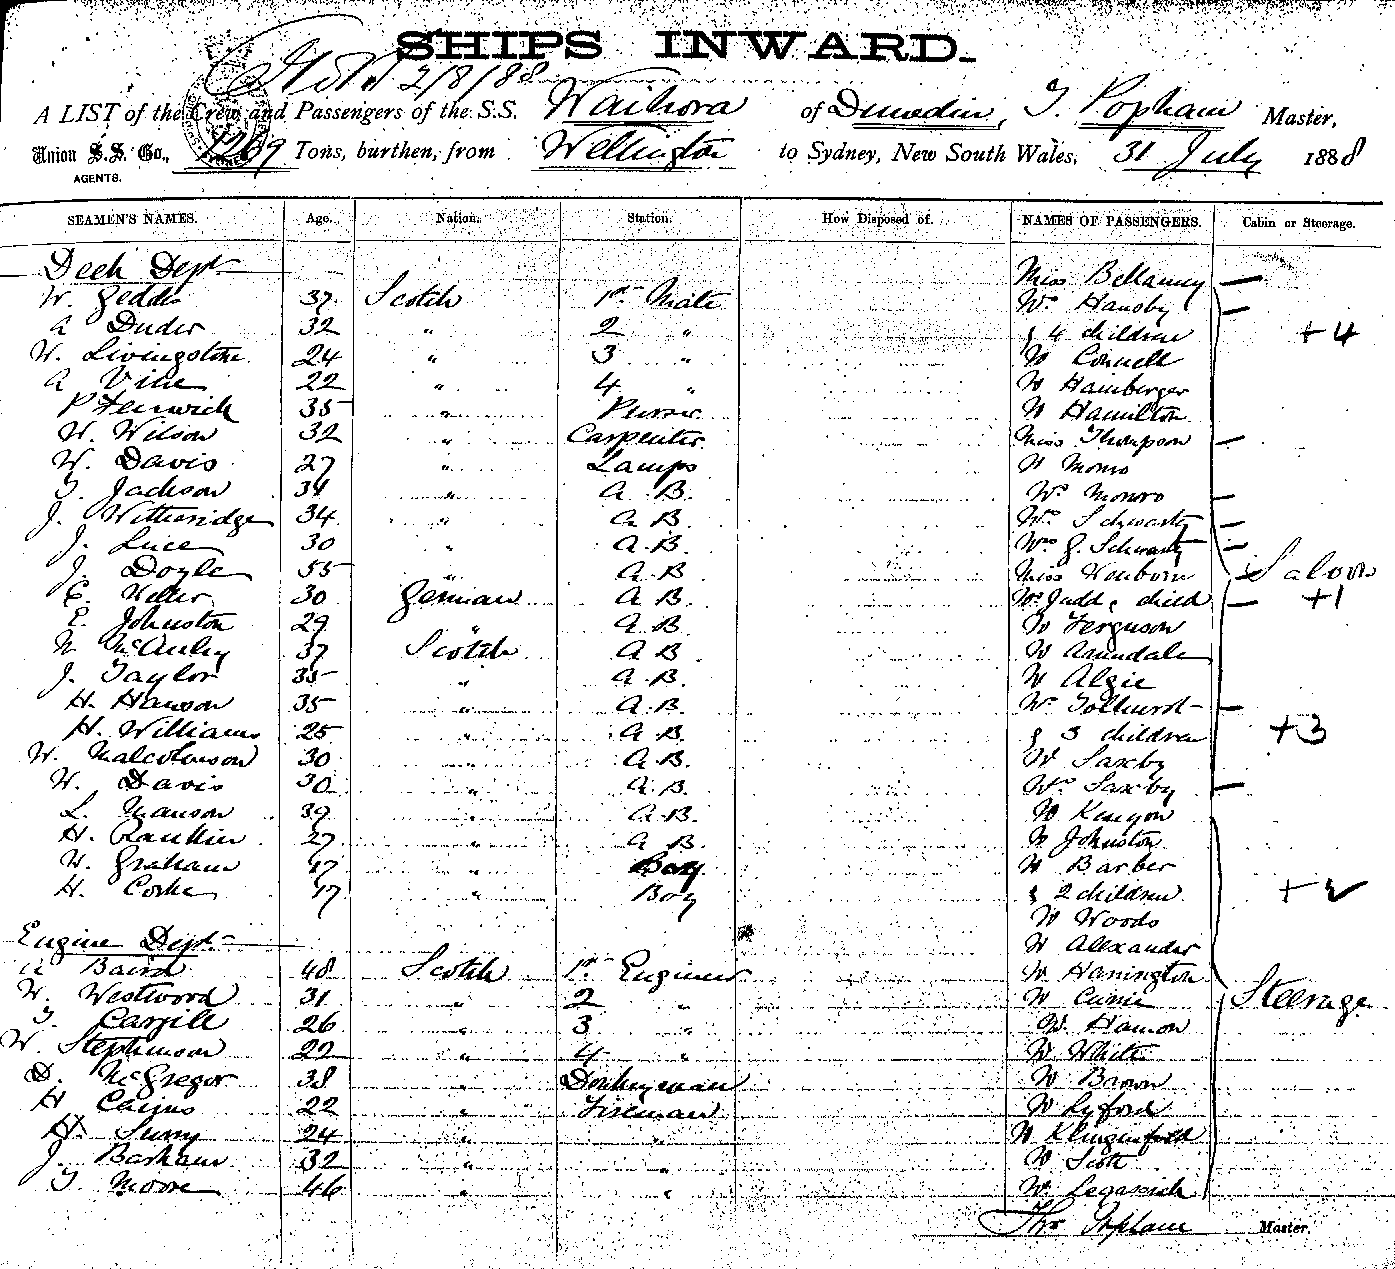 SHIPS INWARD.
2/8/88
A LIST of the Crew and Passengers of the S.S. Waihora of Dunedin, T. Popham Master,
Union S.S. Co., Tons, burthen, from Wellington to Sydney, New South Wales, 31 July 1888
AGENTS.
SEAMEN'S NAMES. Age. Nation. Station. How Disposed of. NAMES OF PASSENGERS. Cabin or Steerage.
Deck Dept Miss Bellamy —
W. Geddes 37 Scotch 1st Mate Mrs Hansby —
A Duder 32 " 2 " & 4 children +4
W. Livingstone 24 " 3 " Mr Connell
A Vine 22 " 4 " Mr Hamberger
P Fenwick 35 " Purser Mr Hamilton
W. Wilson 32 " Carpenter Miss Thompson —
W. Davis 27 " Lamps Mr Monro
T. Jackson 34 " A B. Mrs Monro —
J. Witheridge 34 " A B. Mrs Schwartz —
J. Luce 30 " A.B. Mrs G. Schwartz —
J. Doyle 55 " A B Miss — Saloon
30 German A B. Mrs Judd & child — +1
E. Johnston 29 " A B. Mr Ferguson
McAuley 37 Scotch A B Mr Arundale
J. Taylor 35 " A.B. Mr Algie
H. Hanson 35 " A.B. Mrs Tolhurst —
H. Williams 25 " A B. & 3 children +3
W. Malcolmson 30 " A B. Mr Saxby
W. Davis 30 " A B. Mrs Saxby —
L. Manson 39 " A.B. Mr Kenyon
H. Rankin 27 " A B. Mr Johnston
W. Graham 17 " Boy Mr Barber
H. 17 " Boy & 2 children +2
Mr Woods
Engine Dept Mr Alexander
A Baird 48 Scotch 1st Engineer Mr Hanington
W. Westwood 31 " 2 " Mr Currie Steerage
T. Cargill 26 " 3 " Mr Hamon
W. Stephenson 22 " 4 " Mr White
D. McGregor 38 " Donkeyman Mr Brown
H Cairns 22 " Fireman Mr Lyford
24 " " Mr
J. Barham 32 " " Mr Scott
T. Moore 46 " " Mr
Thos Popham Master.